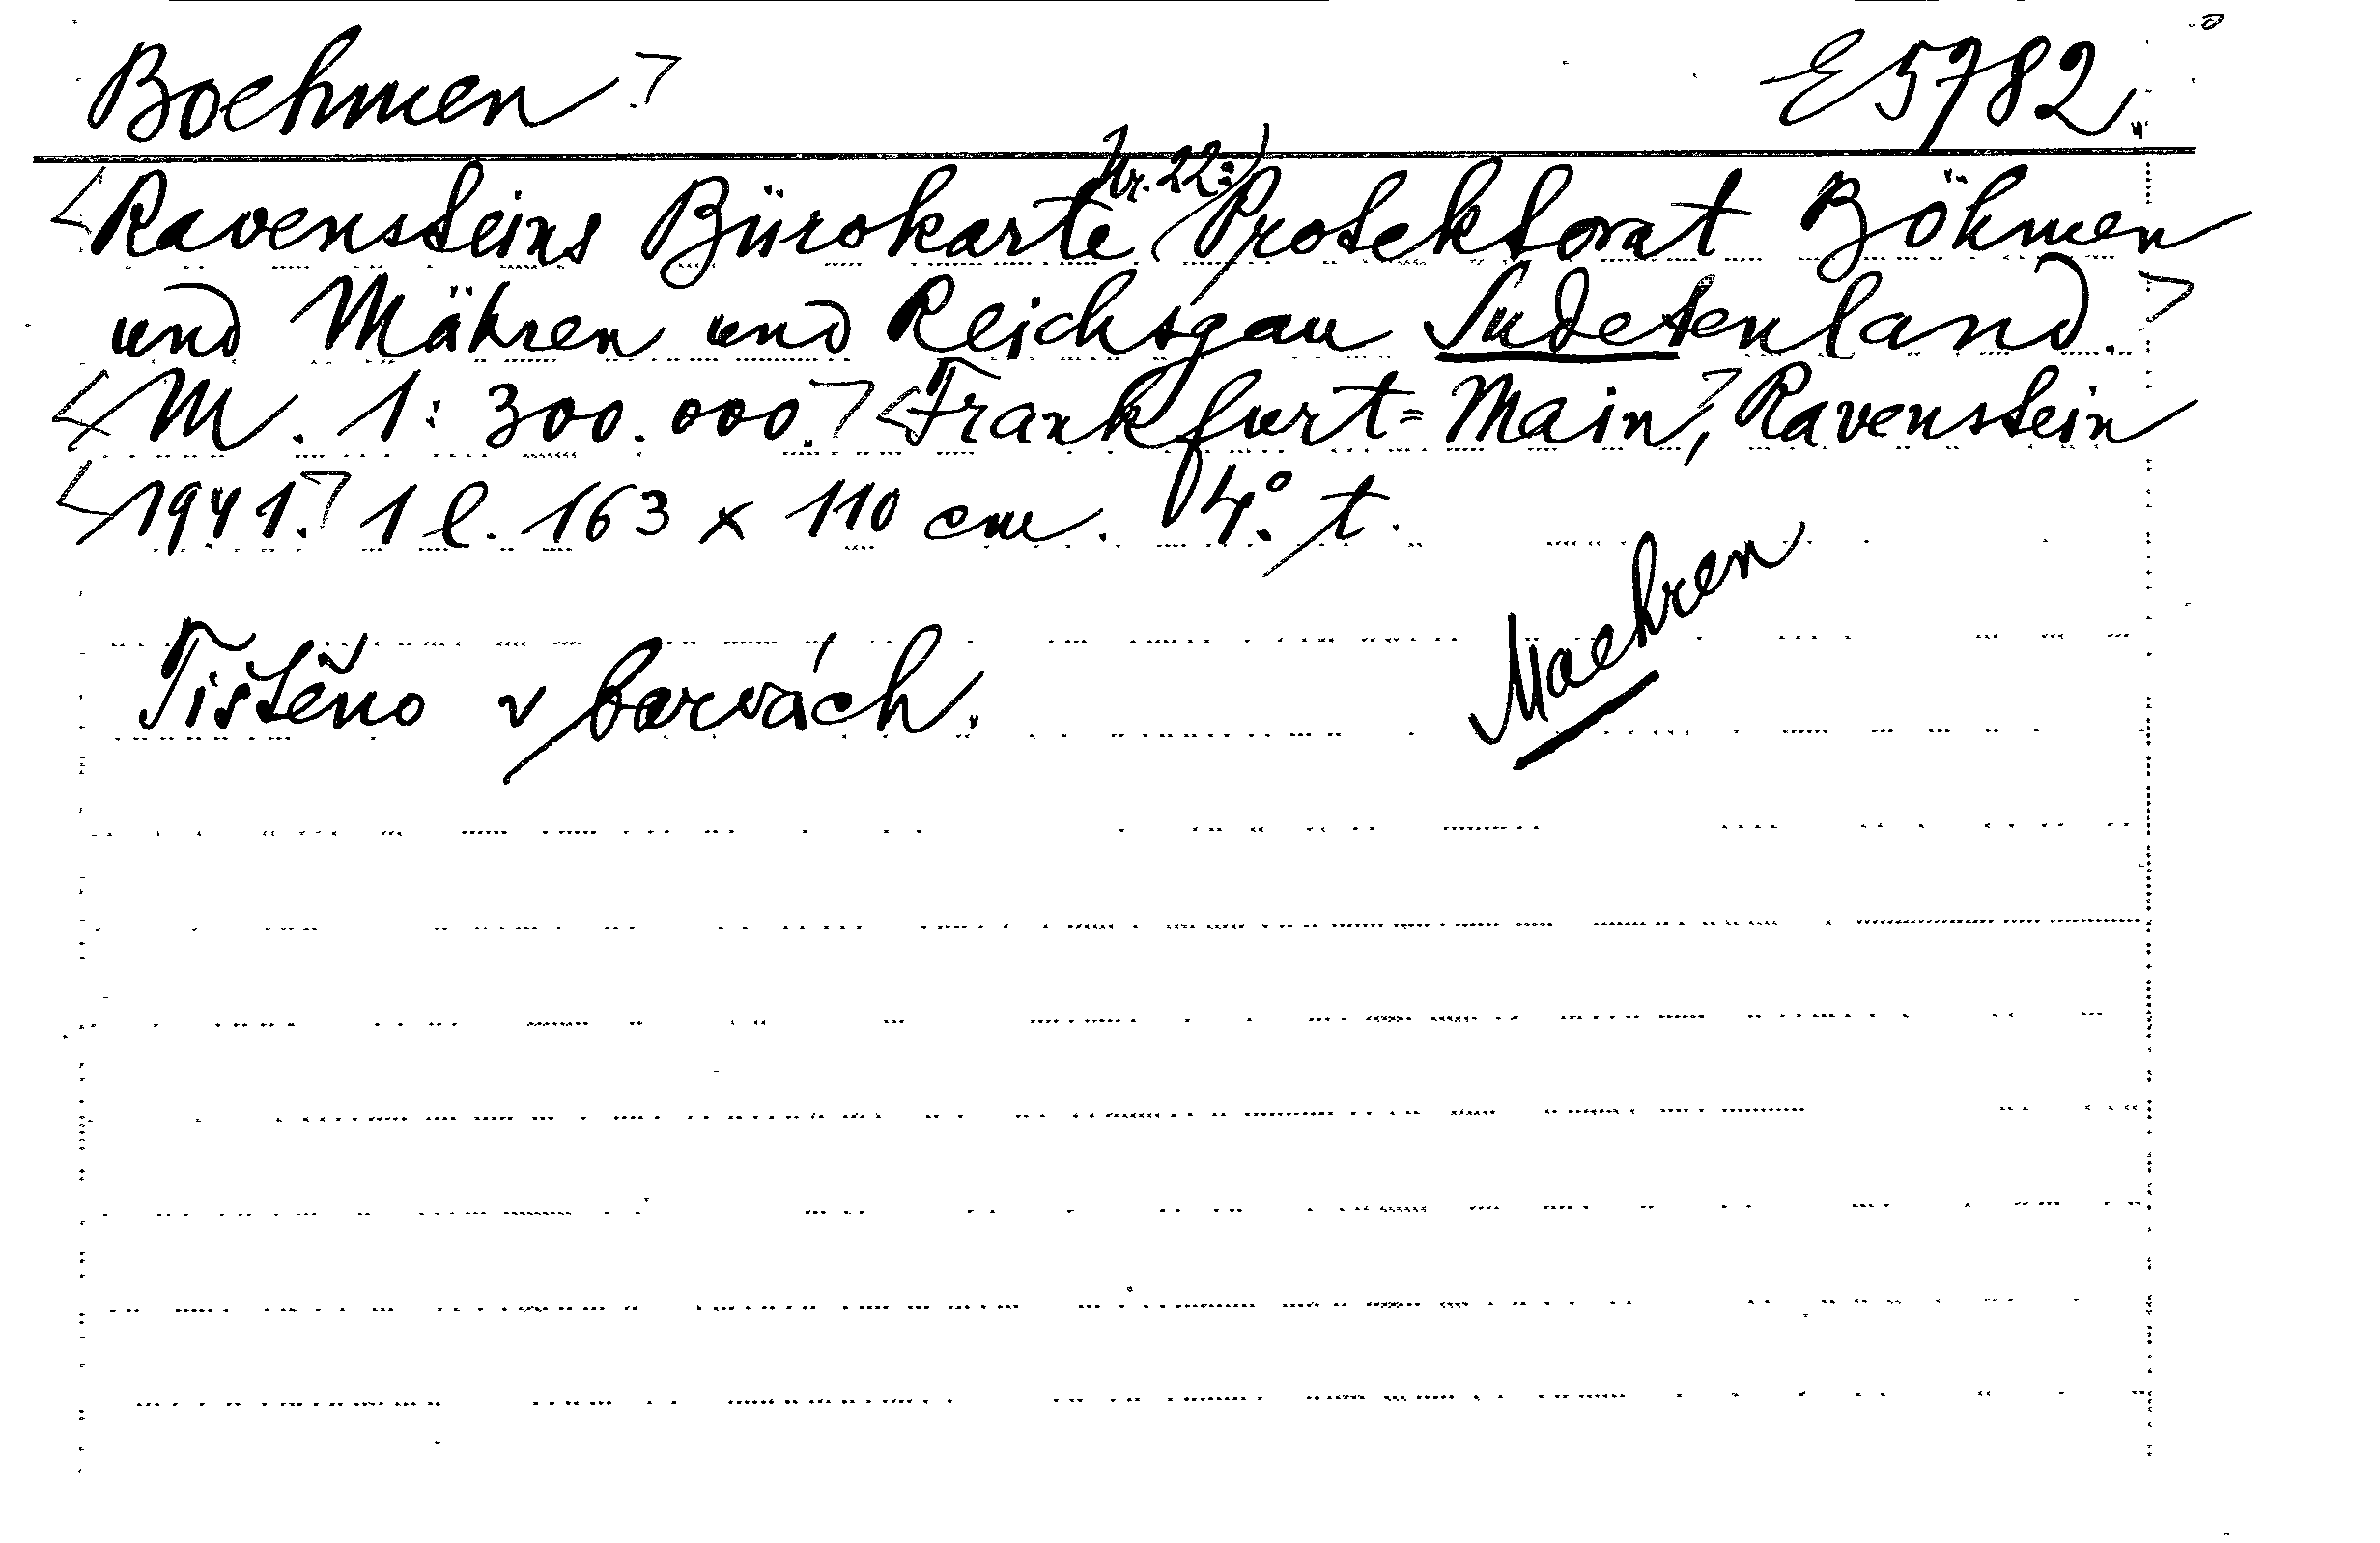 Boehmen E 5782.
Ravensteins Bürokarte Nr. 22: Protektorat Böhmen
und Mähren und Reichsgau Sudetenland.
M. 1: 300.000. Frankfurt=Main, Ravenstein
1941. 1 l. 163 x 110 cm. 4°. t.
Maehren
Tištěno v barvách.